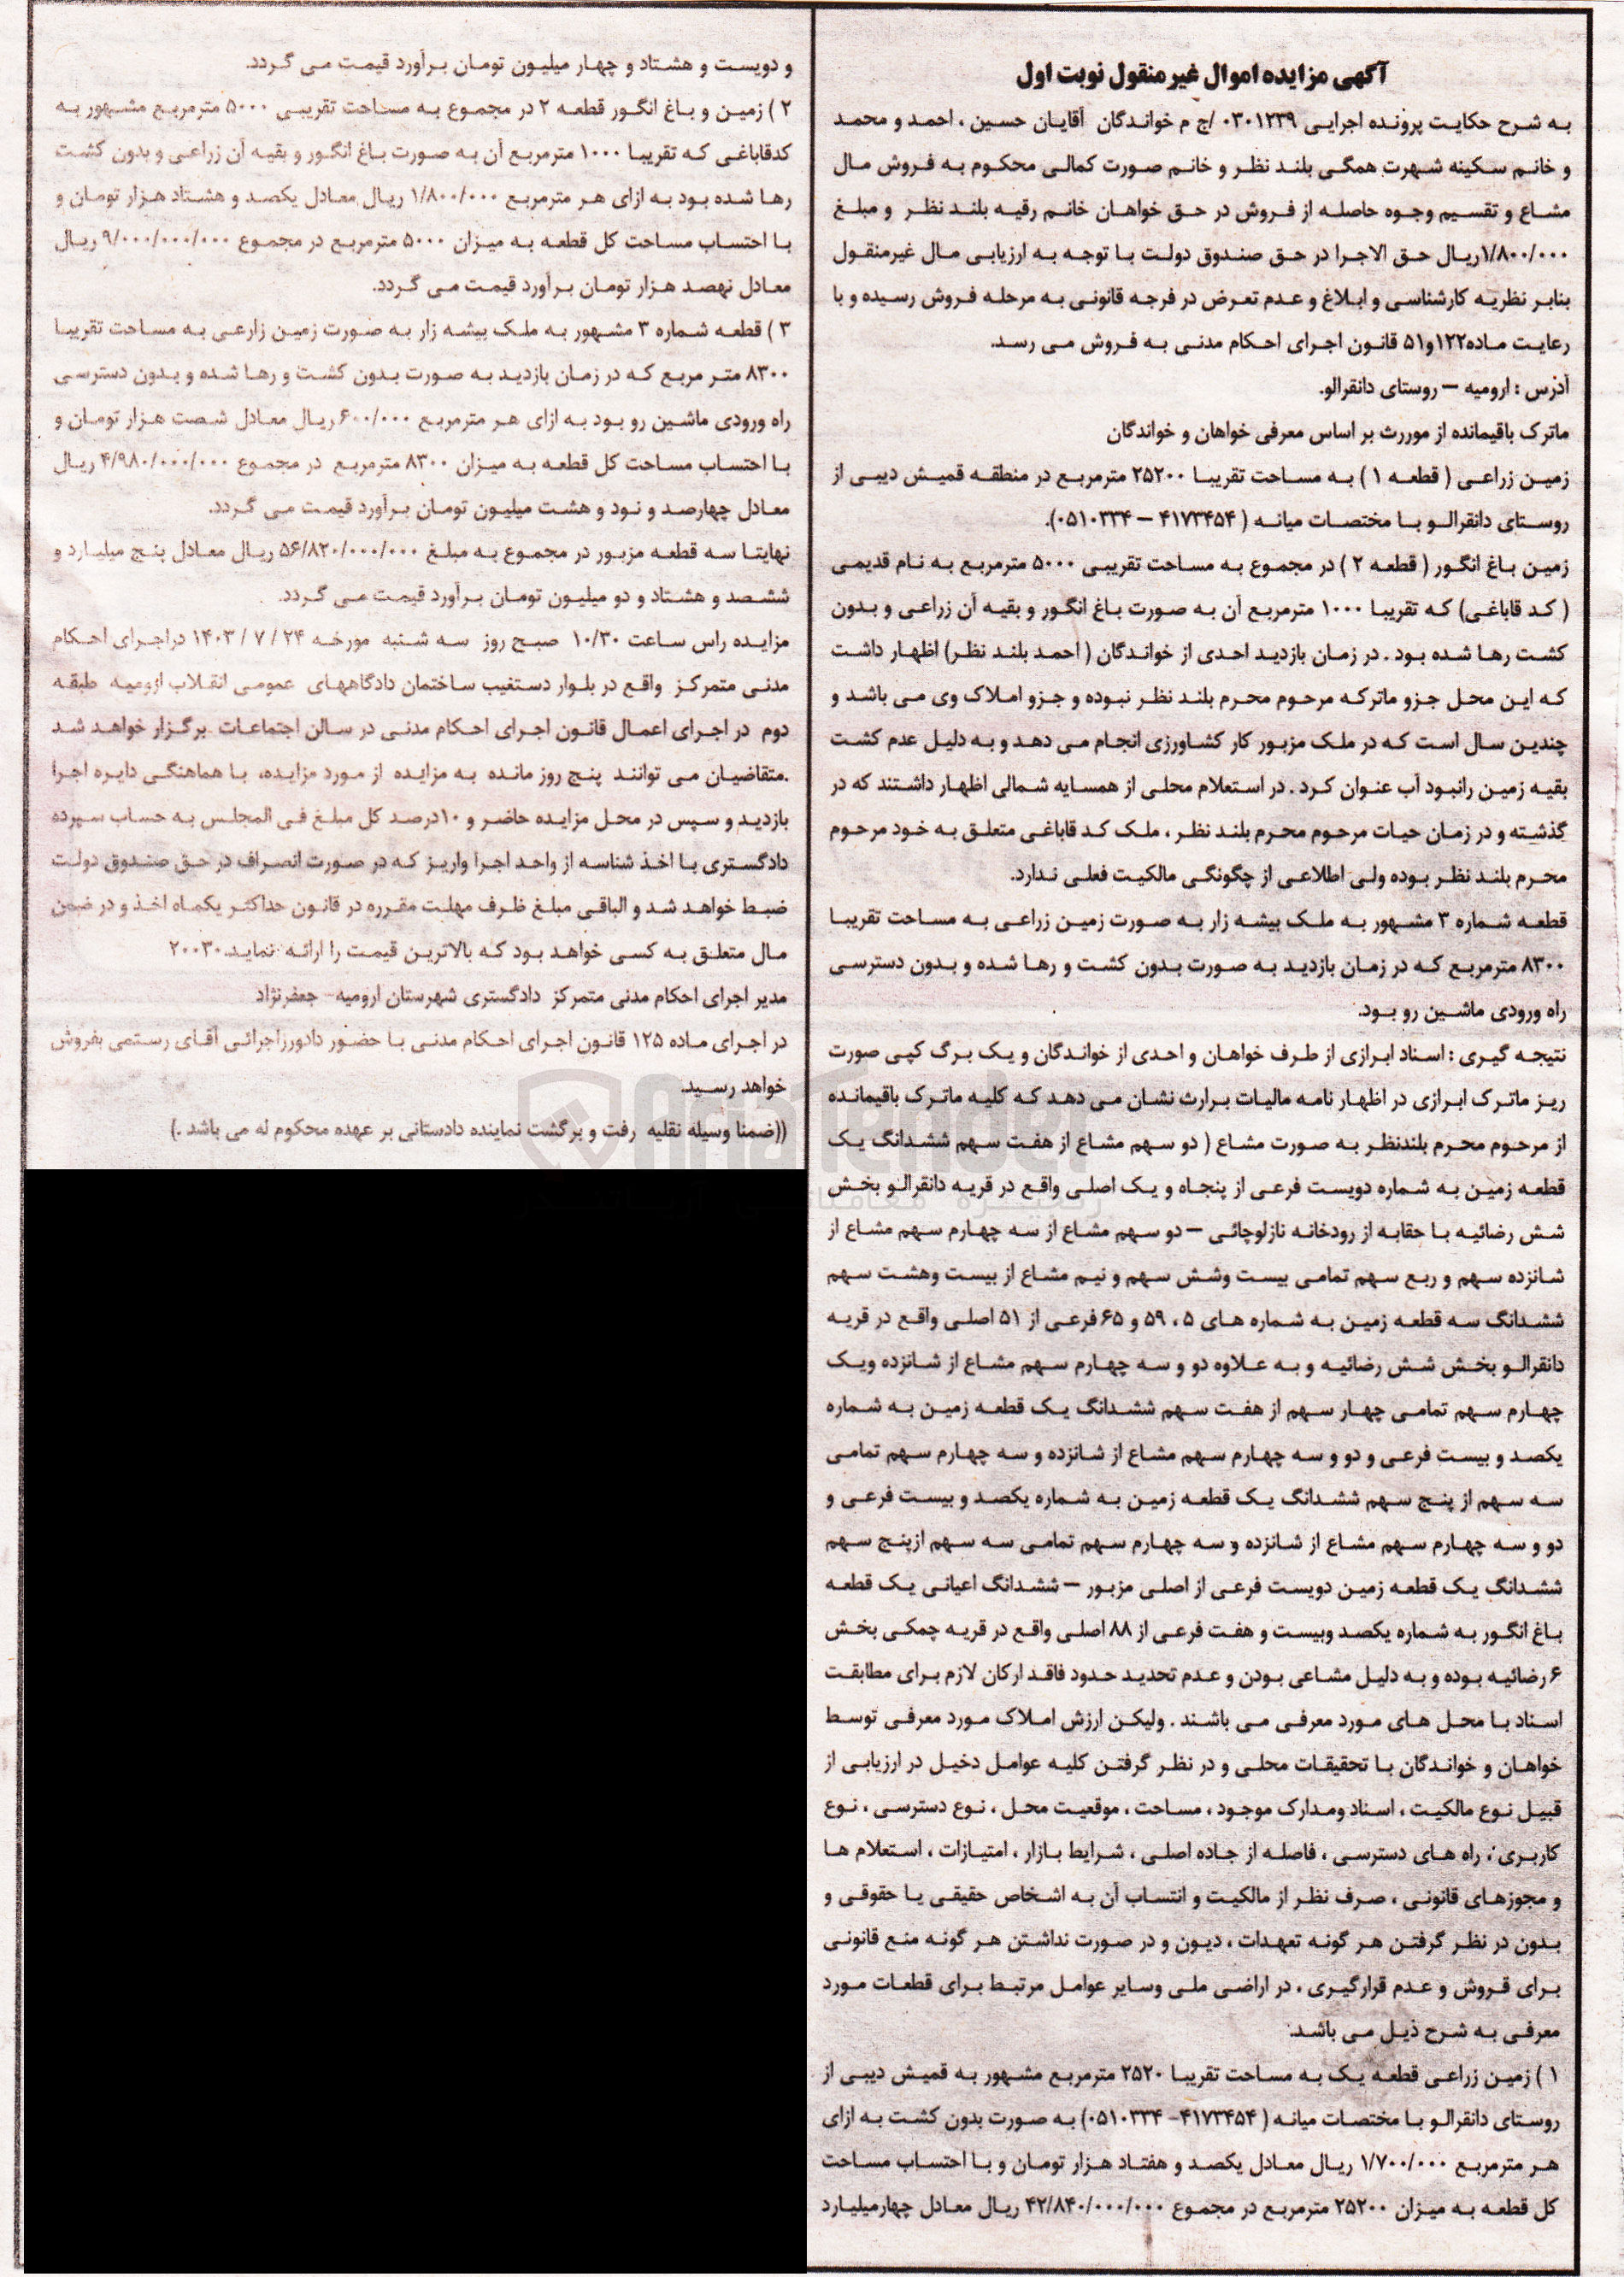 آگهی مزایده اموال غیر منقول نوبت اول
به شرح حکایت پرونده اجرایی ۰۳۰۱۲۳۹ /ج م خواندگان آقایان حسین ، احمد و محمد
و خانم سکینه شهرت همگی بلند نظر و خانم صورت کمالی محکوم به فروش مال
مشاع و تقسیم وجوه حاصله از فروش در حق خواهان خانم رقیه بلند نظر و مبلغ
۱/۸۰۰/۰۰۰ریال حق الاجرا در حق صندوق دولت با توجه به ارزیابی مال غیرمنقول
بنابر نظریه کارشناسی و ابلاغ و عدم تعرض در فرجه قانونی به مرحله فروش رسیده و با
رعایت ماده۱۲۲و۵۱ قانون اجرای احکام مدنی به فروش می رسد.
آدرس : ارومیه – روستای دانقرالو.
ماترک باقیمانده از موررث بر اساس معرفی خواهان و خواندگان
زمین زراعی ( قطعه ۱ ) به مساحت تقریبا ۲۵۲۰۰ مترمربع در منطقه قمیش دیبی از
روستای دانقرالو با مختصات میانه ( ۴۱۷۳۴۵۴ – ۰۵۱۰۳۳۴).
زمین باغ انگور ( قطعه ۲ ) در مجموع به مساحت تقریبی ۵۰۰۰ مترمربع به نام قدیمی
( کد قاباغی) که تقریبا ۱۰۰۰ مترمربع آن به صورت باغ انگور و بقیه آن زراعی و بدون
کشت رها شده بود . در زمان بازدید احدی از خواندگان ( احمد بلند نظر) اظهار داشت
که این محل جزو ماترکه مرحوم محرم بلند نظر نبوده و جزو املاک وی می باشد و
چندین سال است که در ملک مزبور کار کشاورزی انجام می دهد و به دلیل عدم کشت
بقیه زمین رانبود آب عنوان کرد . در استعلام محلی از همسایه شمالی اظهار داشتند که در
گذشته و در زمان حیات مرحوم محرم بلند نظر ، ملک کد قاباغی متعلق به خود مرحوم
محرم بلند نظر بوده ولی اطلاعی از چگونگی مالکیت فعلی ندارد.
قطعه شماره ۳ مشهور به ملک بیشه زار به صورت زمین زراعی به مساحت تقریبا
۸۳۰۰ مترمربع که در زمان بازدید به صورت بدون کشت و رها شده و بدون دسترسی
راه ورودی ماشین رو بود.
نتیجه گیری : اسناد ابرازی از طرف خواهان و احدی از خواندگان و یک برگ کپی صورت
ریز ماترک ابرازی در اظهار نامه مالیات برارث نشان می دهد که کلیه ماترک باقیمانده
از مرحوم محرم بلندنظر به صورت مشاع ( دو سهم مشاع از هفت سهم ششدانگ یک
قطعه زمین به شماره دویست فرعی از پنجاه و یک اصلی واقع در قریه دانقرالو بخش
شش رضائیه با حقابه از رودخانه نازلوچائی – دو سهم مشاع از سه چهارم سهم مشاع از
شانزده سهم و ربع سهم تمامی بیست وشش سهم و نیم مشاع از بیست وهشت سهم
ششدانگ سه قطعه زمین به شماره های ۵ ، ۵۹ و ۶۵ فرعی از ۵۱ اصلی واقع در قریه
دانقرالو بخش شش رضائیه و به علاوه دو و سه چهارم سهم مشاع از شانزده ویک
چهارم سهم تمامی چهار سهم از هفت سهم ششدانگ یک قطعه زمین به شماره
یکصد و بیست فرعی و دو و سه چهارم سهم مشاع از شانزده و سه چهارم سهم تمامی
سه سهم از پنج سهم ششدانگ یک قطعه زمین به شماره یکصد و بیست فرعی و
دو و سه چهارم سهم مشاع از شانزده و سه چهارم سهم تمامی سه سهم ازپنج سهم
ششدانگ یک قطعه زمین دویست فرعی از اصلی مزبور – ششدانگ اعیانی یک قطعه
باغ انگور به شماره یکصد وبیست و هفت فرعی از ۸۸ اصلی واقع در قریه چمکی بخش
۶ رضائیه بوده و به دلیل مشاعی بودن و عدم تحدید حدود فاقد ارکان لازم برای مطابقت
اسناد با محل های مورد معرفی می باشند . ولیکن ارزش املاک مورد معرفی توسط
خواهان و خواندگان با تحقیقات محلی و در نظر گرفتن کلیه عوامل دخیل در ارزیابی از
قبیل نوع مالکیت ، اسناد ومدارک موجود ، مساحت ، موقعیت محل ، نوع دسترسی ، نوع
کاربری ، راه های دسترسی ، فاصله از جاده اصلی ، شرایط بازار ، امتیازات ، استعلام ها
و مجوزهای قانونی ، صرف نظر از مالکیت و انتساب آن به اشخاص حقیقی یا حقوقی و
بدون در نظر گرفتن هر گونه تعهدات ، دیون و در صورت نداشتن هر گونه منع قانونی
برای فروش و عدم قرارگیری ، در اراضی ملی وسایر عوامل مرتبط برای قطعات مورد
معرفی به شرح ذیل می باشد.
۱ ) زمین زراعی قطعه یک به مساحت تقریبا ۲۵۲۰ مترمربع مشهور به قمیش دیبی از
روستای دانقرالو با مختصات میانه ( ۴۱۷۳۴۵۴- ۰۵۱۰۳۳۴) به صورت بدون کشت به ازای
هر مترمربع ۱/۷۰۰/۰۰۰ ریال معادل یکصد و هفتاد هزار تومان و با احتساب مساحت
کل قطعه به میزان ۲۵۲۰۰ مترمربع در مجموع ۴۲/۸۴۰/۰۰۰/۰۰۰ ریال معادل چهارمیلیارد
و دویست و هشتاد و چهار میلیون تومان برآورد قیمت می گردد.
۲ ) زمین و باغ انگور قطعه ۲ در مجموع به مساحت تقریبی ۵۰۰۰ مترمربع مشهور به
کدقاباغی که تقریبا ۱۰۰۰ مترمربع آن به صورت باغ انگور و بقیه آن زراعی و بدون کشت
رها شده بود به ازای هر مترمربع ۱/۸۰۰/۰۰۰ ریال معادل یکصد و هشتاد هزار تومان و
با احتساب مساحت کل قطعه به میزان ۵۰۰۰ مترمربع در مجموع ۹/۰۰۰/۰۰۰/۰۰۰ ریال
معادل نهصد هزار تومان برآورد قیمت می گردد.
۳ ) قطعه شماره ۳ مشهور به ملک بیشه زار به صورت زمین زارعی به مساحت تقریبا
۸۳۰۰ متر مربع که در زمان بازدید به صورت بدون کشت و رها شده و بدون دسترسی
راه ورودی ماشین رو بود به ازای هر مترمربع ۶۰۰/۰۰۰ ریال معادل شصت هزار تومان و
با احتساب مساحت کل قطعه به میزان ۸۳۰۰ مترمربع در مجموع ۴/۹۸۰/۰۰۰/۰۰۰ ریال
معادل چهارصد و نود و هشت میلیون تومان برآورد قیمت می گردد.
نهایتا سه قطعه مزبور در مجموع به مبلغ ۵۶/۸۲۰/۰۰۰/۰۰۰ ریال معادل پنج میلیارد و
ششصد و هشتاد و دو میلیون تومان برآورد قیمت می گردد.
مزایده راس ساعت ۱۰/۳۰ صبح روز سه شنبه مورخه ۲۴ / ۷ / ۱۴۰۳ دراجرای احکام
مدنی متمرکز واقع در بلوار دستغیب ساختمان دادگاههای عمومی انقلاب ارومیه طبقه
دوم در اجرای اعمال قانون اجرای احکام مدنی در سالن اجتماعات برگزار خواهد شد
.متقاضیان می توانند پنج روز مانده به مزایده از مورد مزایده، با هماهنگی دایره اجرا
بازدید و سپس در محل مزایده حاضر و ۱۰درصد کل مبلغ فی المجلس به حساب سپرده
دادگستری با اخذ شناسه از واحد اجرا واریز که در صورت انصراف در حق صندوق دولت
ضبط خواهد شد و الباقی مبلغ ظرف مهلت مقرره در قانون حداکثر یکماه اخذ و در ضمن
مال متعلق به کسی خواهد بود که بالاترین قیمت را ارائه نماید.۲۰۰۳۰
مدیر اجرای احکام مدنی متمرکز دادگستری شهرستان ارومیه- جعفرنژاد
در اجرای ماده ۱۲۵ قانون اجرای احکام مدنی با حضور دادورزاجرائی آقای رستمی بفروش
خواهد رسید.
((ضمنا وسیله نقلیه رفت و برگشت نماینده دادستانی بر عهده محکوم له می باشد .)
AriaTender